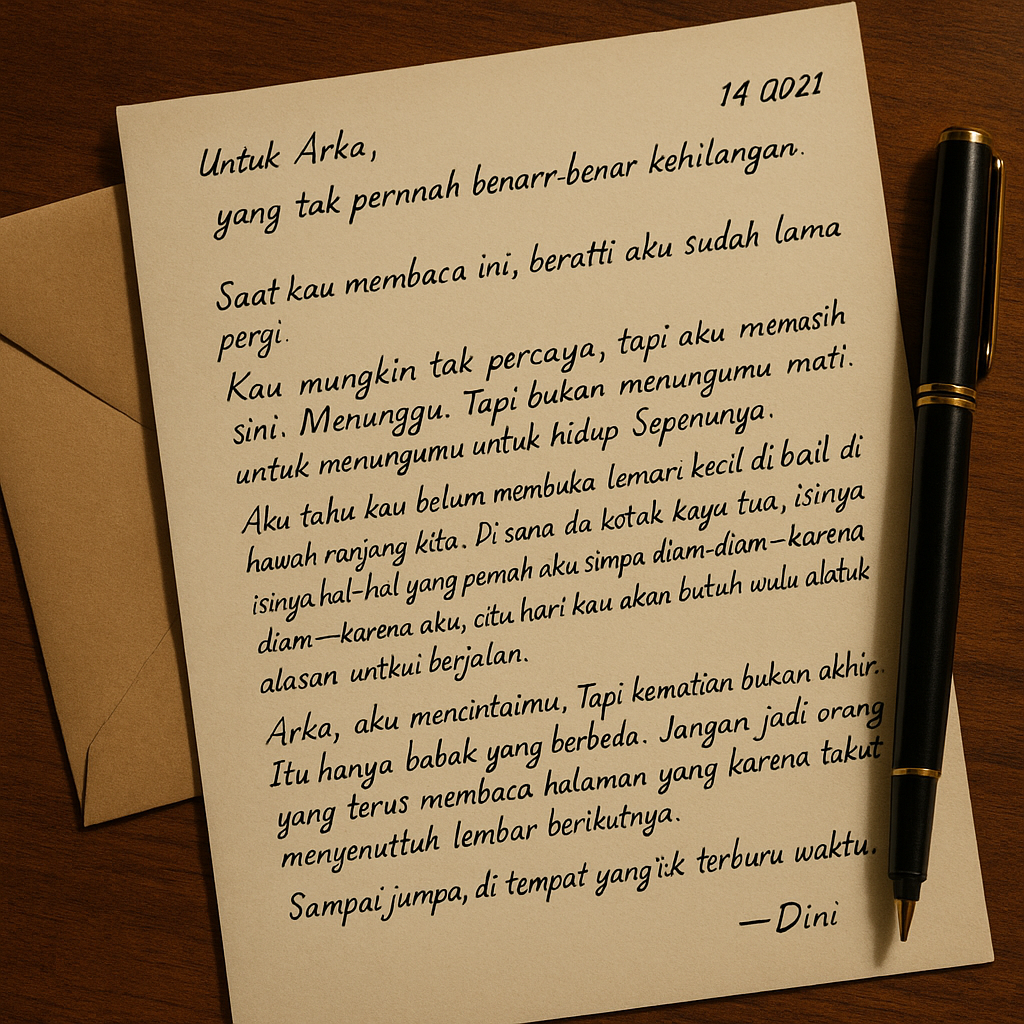 14 0021
Untuk Arka,
yang tak pernnah benarr-benar kehilangan.
Saat kau membaca ini, beratti aku sudah lama
pergi.
Kau mungkin tak percaya, tapi aku memasih
sini. Menunggu. Tapi bukan menungumu mati.
untuk menungumu untuk hidup Sepenunya.
Aku tahu kau belum membuka lemari kecil di bail di
hawah ranjang kita. Di sana da kotak kayu tua, isinya
isinya hal-hal yang pemah aku simpa diam-diam–karena
diam—karena aku, citu hari kau akan butuh wulu alatuk
alasan untkui berjalan.
Arka, aku mencintaimu, Tapi kematian bukan akhir..
Itu hanya babak yang berbeda. Jangan jadi orang
yang terus membaca halaman yang karena takut
menyenuttuh lembar berikutnya.
Sampai jumpa, di tempat yang terburu waktu.
—Dini